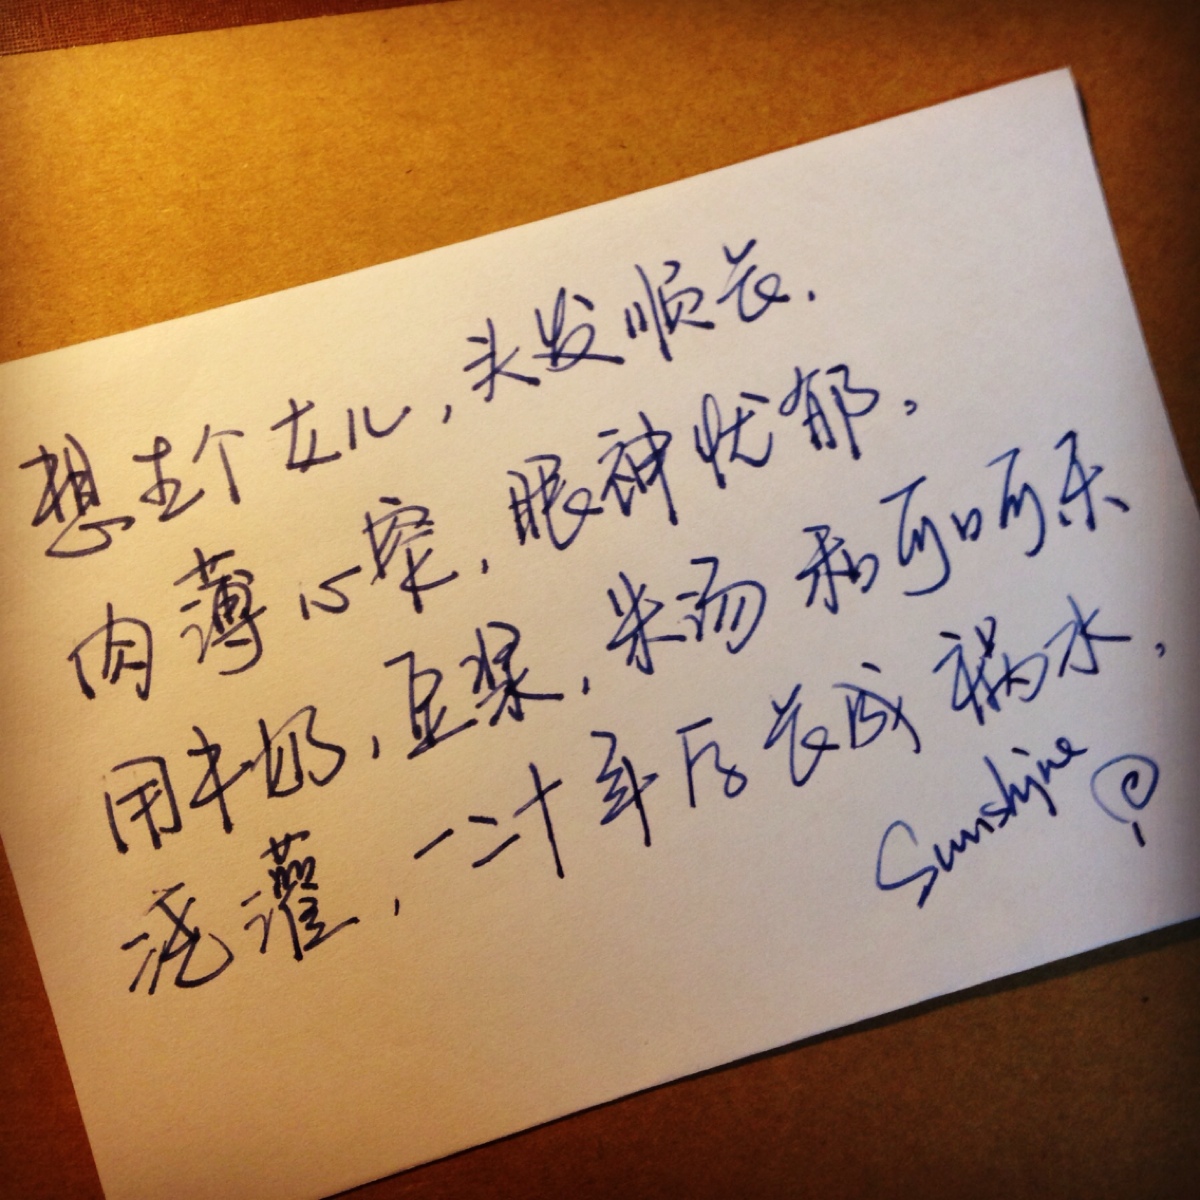 想生个女儿,头发顺长.
肉薄心窄,眼神忧郁.
用牛奶,豆浆,米汤和可口可乐
浇灌,一二十年后长成祸水.
Sunshine